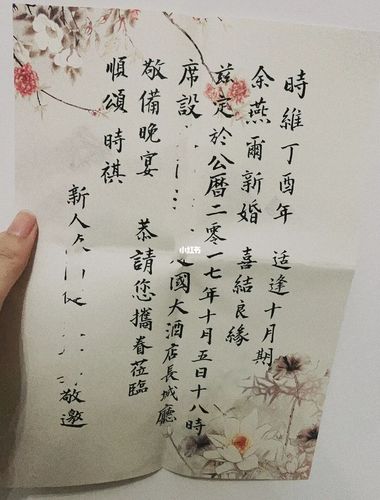 時維丁酉年 适逢十月期
余燕爾新婚 喜結良緣
茲定於公曆二零一七年十月五日十八時
席設 國大酒店長城廳
敬備晚宴 恭請您攜眷蒞臨
順頌時祺
新人 敬邀
小红书